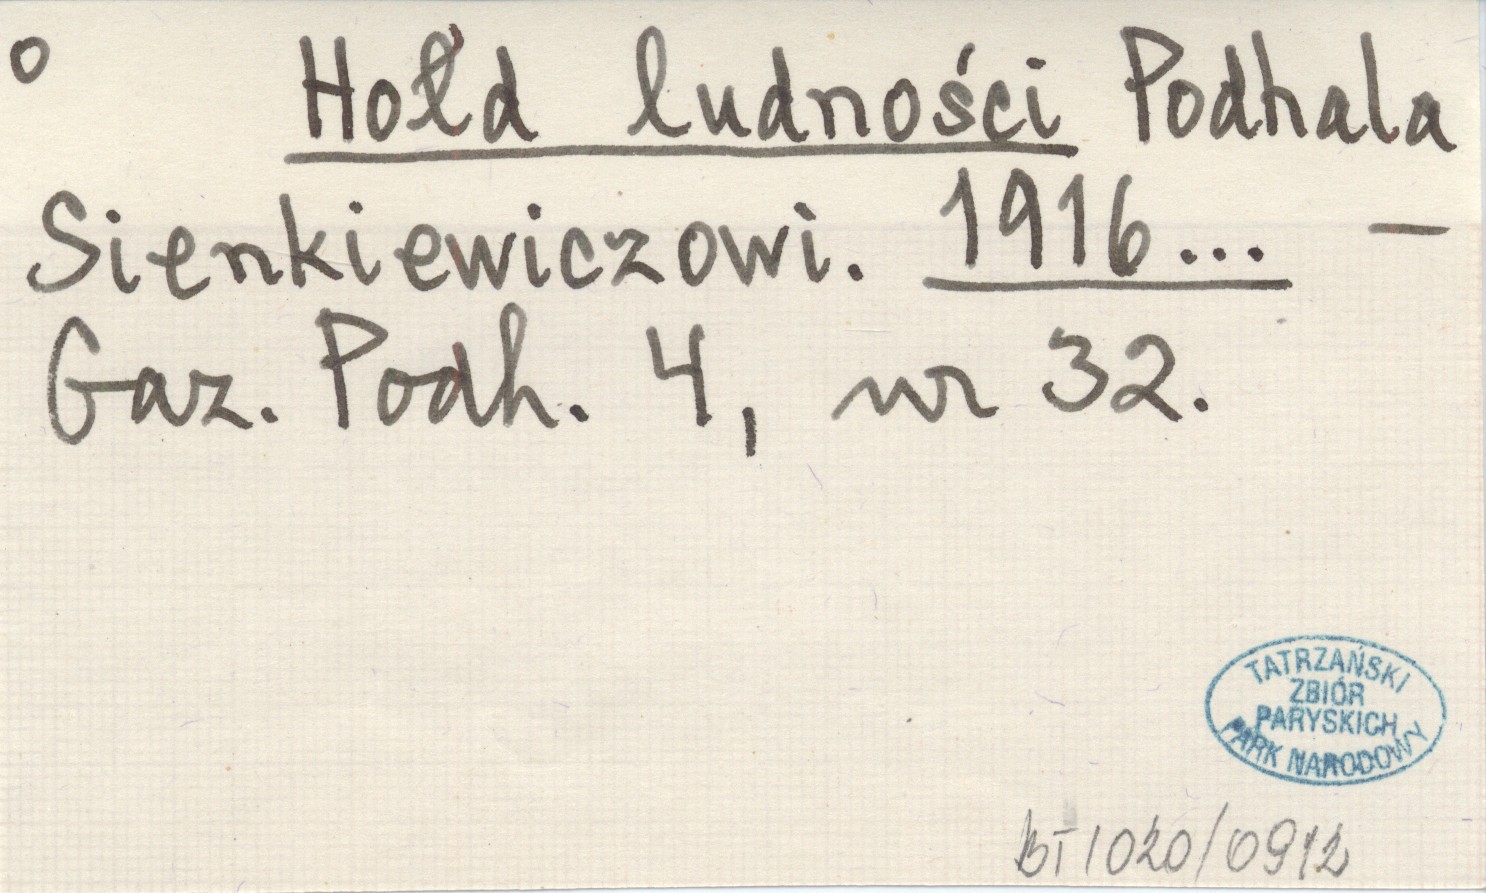 o Hołd ludności Podhala
Sienkiewiczowi. 1916... –
Gaz. Podh. 4, nr 32.
TATRZAŃSKI
ZBIÓR
PARYSKICH
PARK NARODOWY
BT 1020/0912